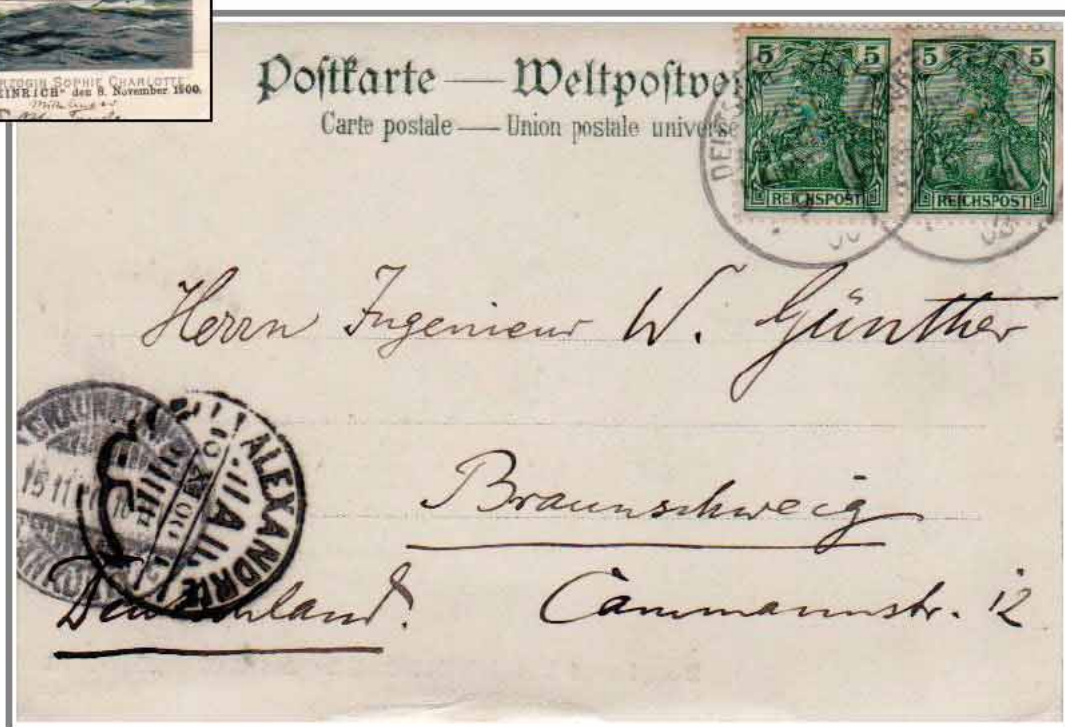 RZOGIN SOPHIE CHARLOTTE
EINRICH" den 8. November 1900.
Postkarte — Weltpostver
Carte postale — Union postale universe
5 5 5 5
REICHSPOST REICHSPOST
DEU
Herrn Ingenieur W. Günther
ALEXANDRIE
15 11
Braunschweig
Deutschland. Cammannstr. 12